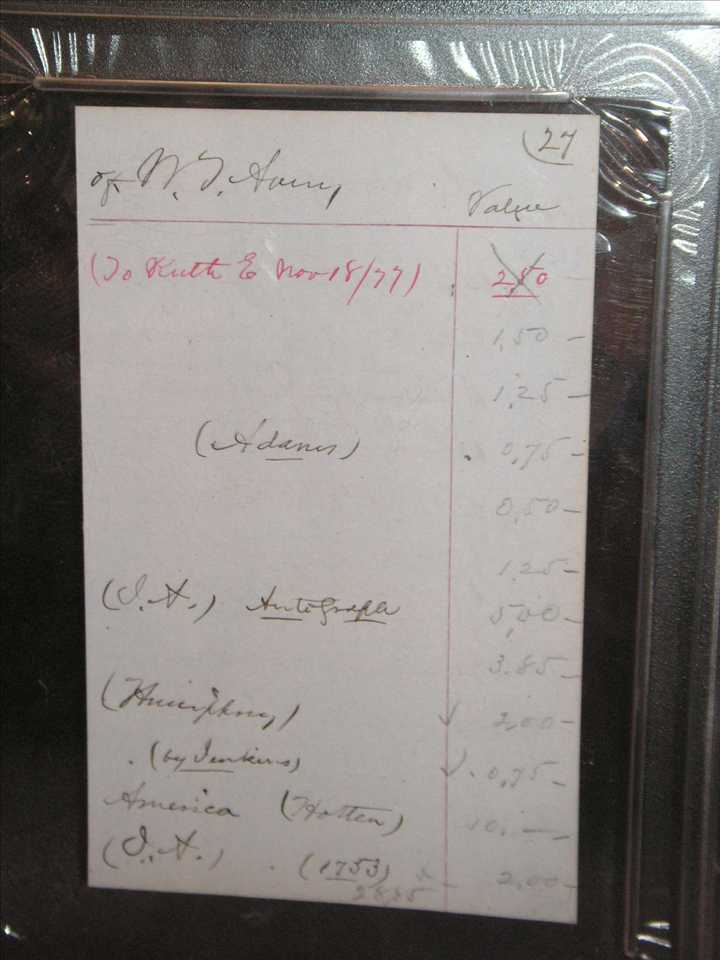 (27
of W. T. Avery
Value
(To Ruth E Nov 18/77) 2,50
1,50 -
1,25 -
(Adams) 0,75 -
0,50 -
1,25 -
(J. A.) Autograph 5,00 -
3.85 -
(Humphrey) 2,00 -
(by Jenkins) 0,75 -
America (Hotten) 10,—
(J. A.) (1753) 2,00 -